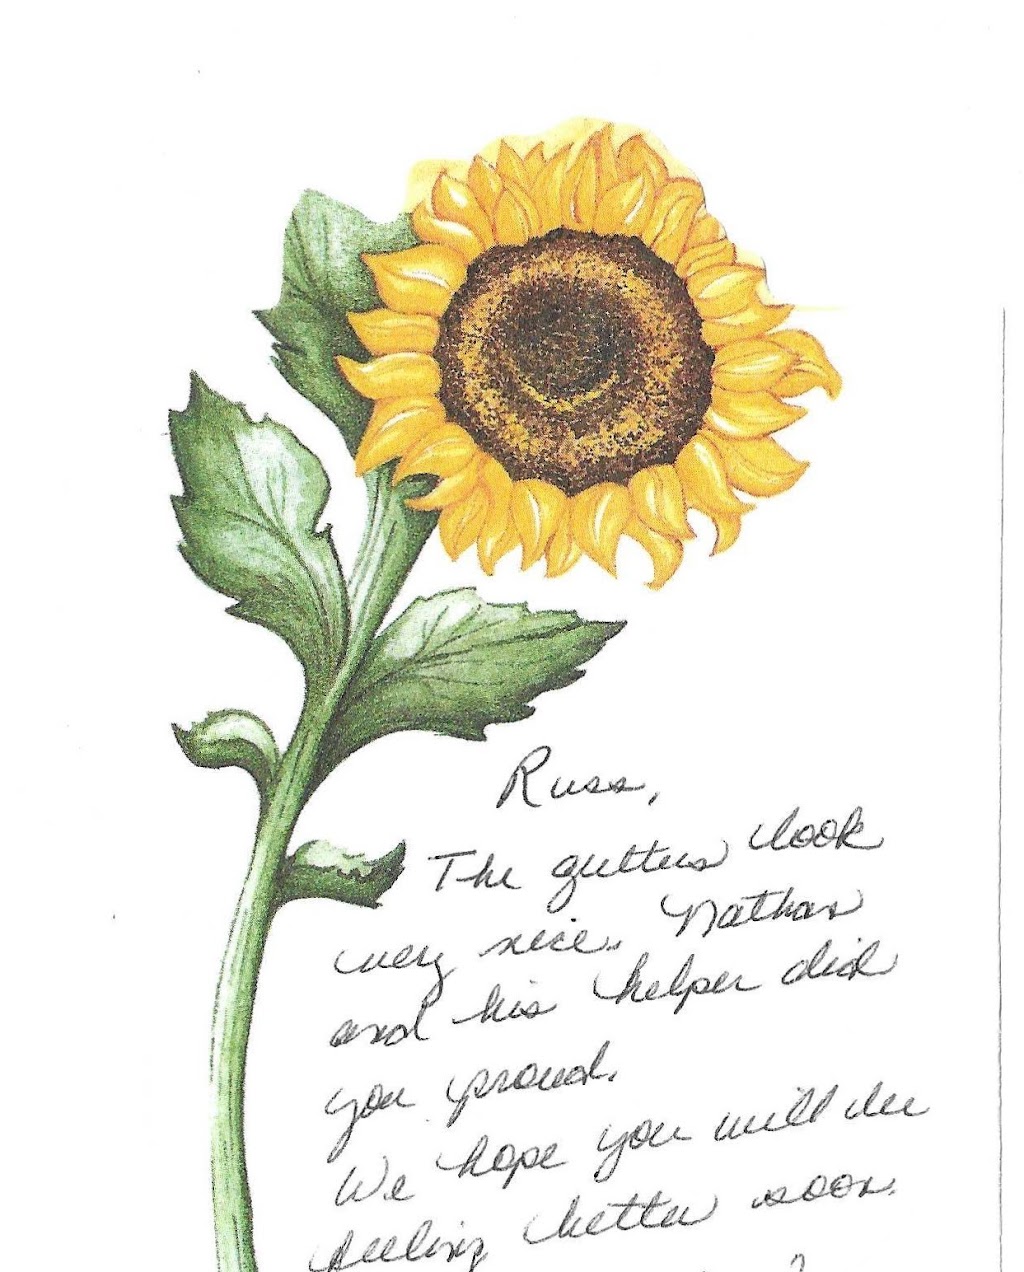 Russ,
The gutters look
very nice. Nathan
and his helper did
you proud.
We hope you will be
feeling better soon.